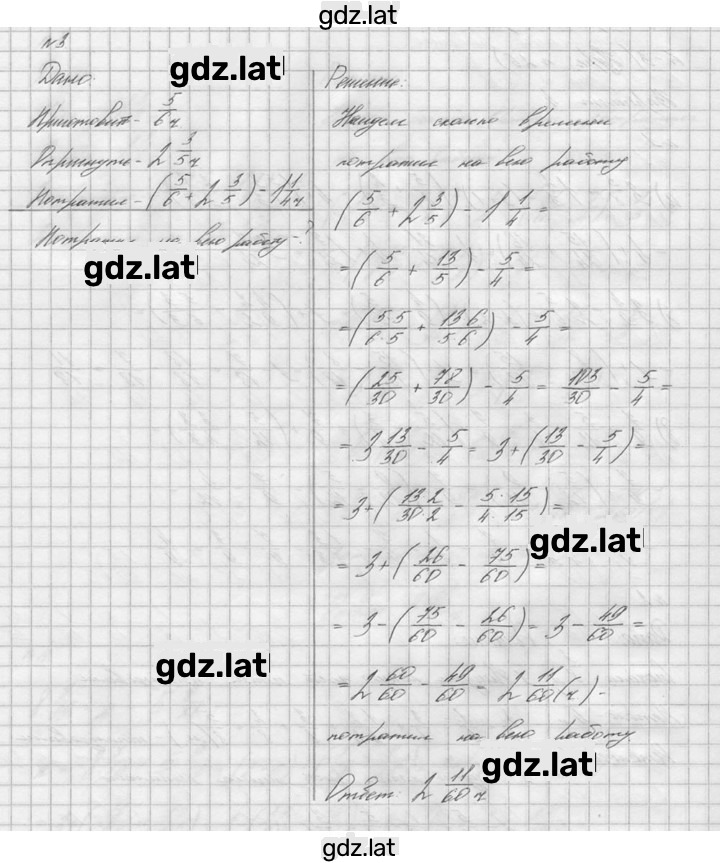 gdz.lat
№3
Дано:
gdz.lat
Приготовит - 5/6 ч
- 2 3/5 ч
Потратил - (5/6 + 2 3/5) - 1 1/4 ч
Потратил на всю работу - ?
gdz.lat
Решение:
Найдем сколько времени
потратил на всю работу
(5/6 + 2 3/5) - 1 1/4 =
= (5/6 + 13/5) - 5/4 =
= (5·5/6·5 + 13·6/5·6) - 5/4 =
= (25/30 + 78/30) - 5/4 = 103/30 - 5/4 =
= 3 13/30 - 5/4 = 3 + (13/30 - 5/4) =
= 3 + (13·2/30·2 - 5·15/4·15) =
gdz.lat
= 3 + (26/60 - 75/60) =
= 3 - (75/60 - 26/60) = 3 - 49/60 =
gdz.lat
= 2 60/60 - 49/60 = 2 11/60 (ч) -
потратил на всю работу
gdz.lat
Ответ: 2 11/60 ч
gdz.lat